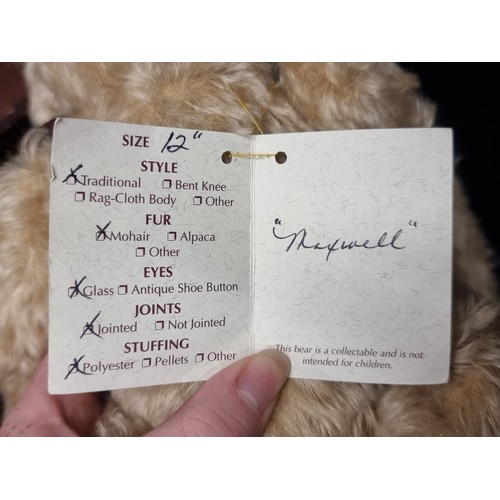 SIZE 12"
STYLE
☒ Traditional ☐ Bent Knee
☐ Rag-Cloth Body ☐ Other
FUR
☒ Mohair ☐ Alpaca
☐ Other
EYES
☒ Glass ☐ Antique Shoe Button
JOINTS
☒ Jointed ☐ Not Jointed
STUFFING
☒ Polyester ☐ Pellets ☐ Other
"Maxwell"
This bear is a collectable and is not
intended for children.